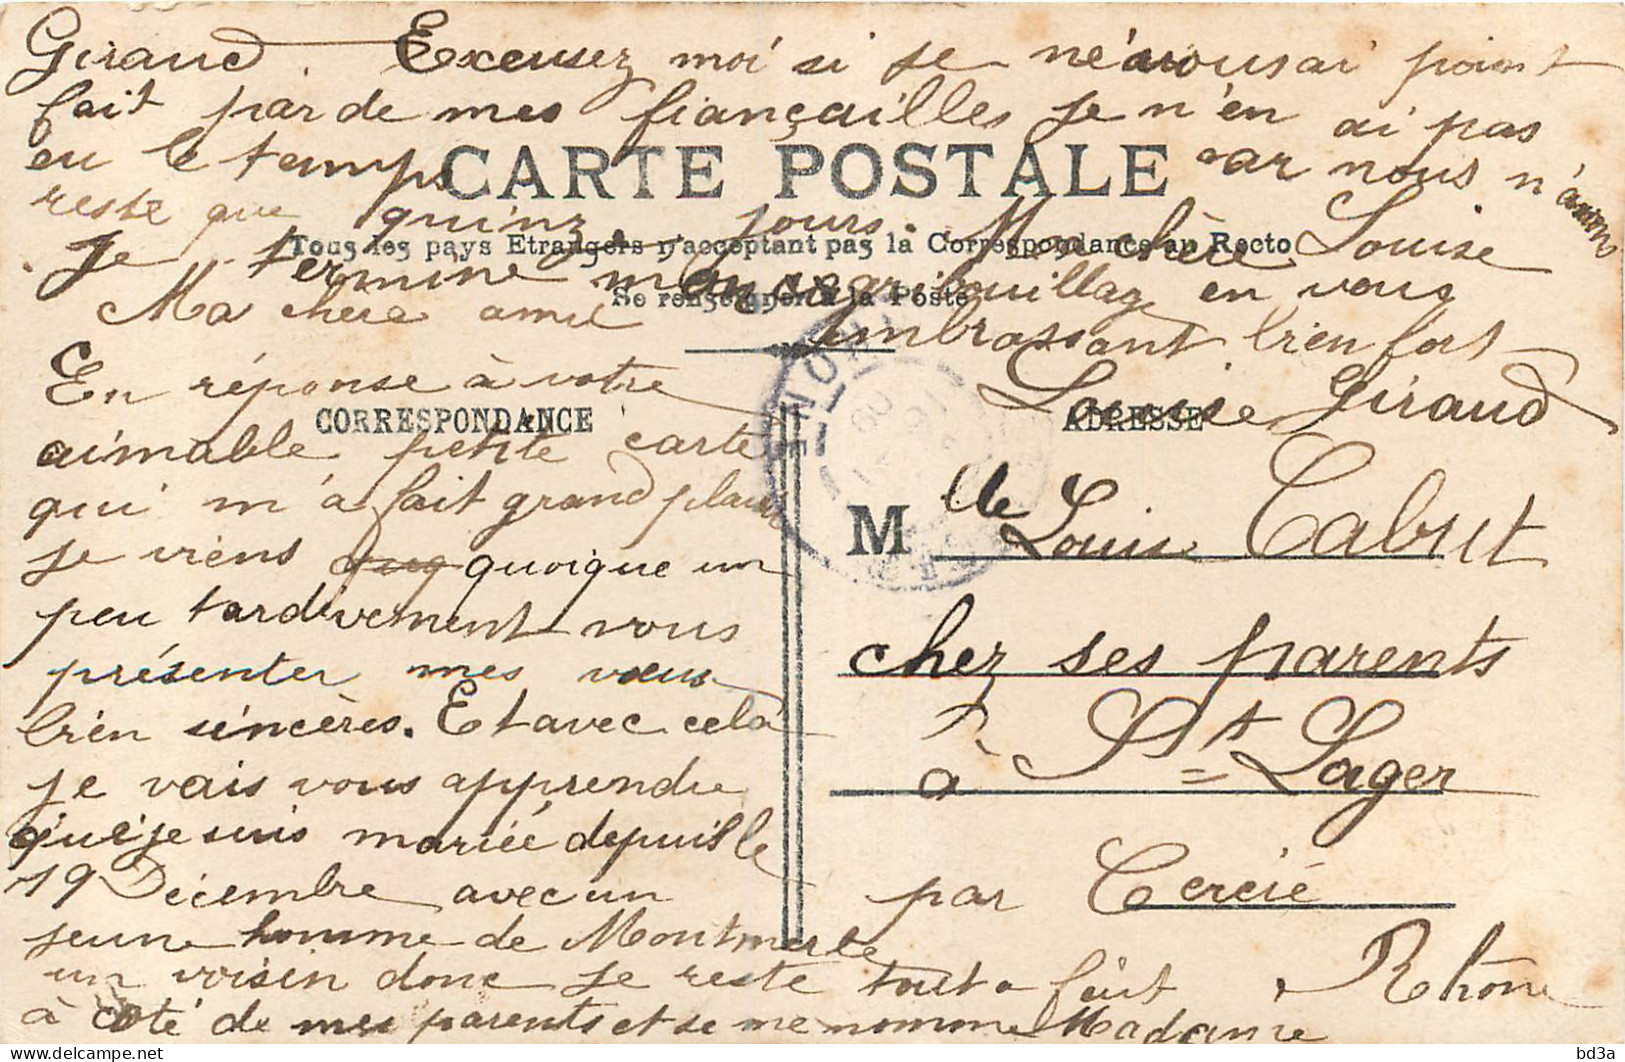 Giraud. Excusez moi si je ne vous ai point
fait par de mes fiançailles je n'en ai pas
eu le temps car nous n'avions
reste que quinze jours. Ma chère Louise
Je termine mon gribouillag en vous
embrassant bien fort
Louise Giraud
CARTE POSTALE
Tous les pays Etrangers n'acceptant pas la Correspondance au Recto
Se renseigner à la Poste
CORRESPONDANCE
ADRESSE
Ma chère amie
En réponse à votre
aimable petite carte
qui m'a fait grand plaisir
je viens quoique un
peu tardivement vous
présenter mes vœux
bien sincères. Et avec celà
je vais vous apprendre
que je suis mariée depuis le
19 Décembre avec un
jeune homme de Montmerle
un voisin donc je reste tout a fait
à côté de mes parents et je me nomme Madame
Mlle Louise Cabut
chez ses parents
à St Lager
par Cercié
Rhône
bd3a